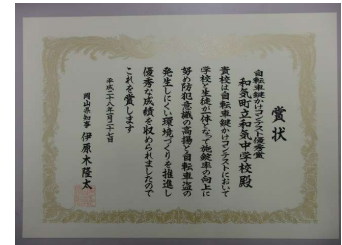 賞状
自転車鍵かけコンテスト優秀賞
和気町立和気中学校殿
貴校は自転車鍵かけコンテストにおいて
学校と生徒が一体となって施錠率の向上に
努め防犯意識の高揚と自転車盗の
発生しにくい環境づくりを推進し
優秀な成績を収められましたので
これを賞します
平成二十八年一月二十七日
岡山県知事 伊原木隆太